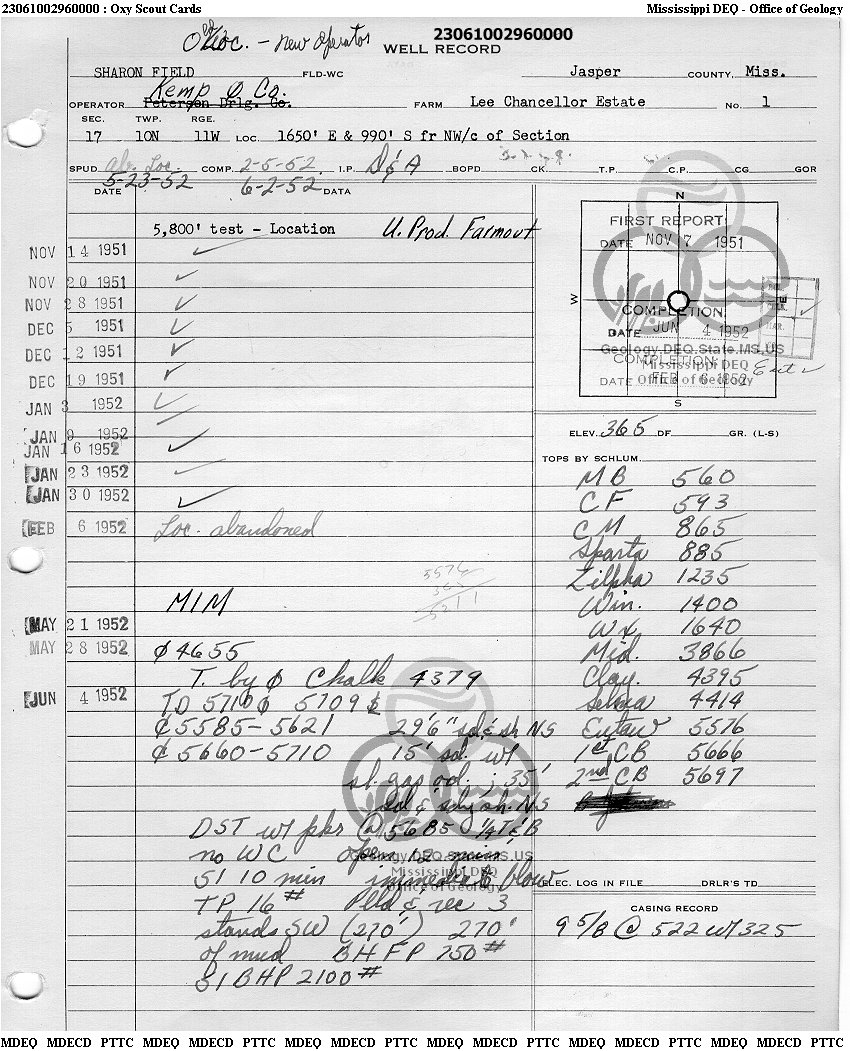 23061002960000 : Oxy Scout Cards Mississippi DEQ - Office of Geology
Loc. - New operator
23061002960000
WELL RECORD
SHARON FIELD FLD-WC Jasper COUNTY, Miss.
Kemp & Co.
OPERATOR Peterson Drlg. Co. FARM Lee Chancellor Estate No. 1
SEC. TWP. RGE.
17 10N 11W LOC. 1650' E & 990' S fr NW/c of Section
SPUD Ab. Loc. COMP. 2-5-52 I.P. D & A BOPD CK. T.P. C.P. CG GOR
5-23-52 6-2-52
DATE DATA
5,800' test - Location U. Prod. Farmout
NOV 14 1951
NOV 20 1951
NOV 28 1951
DEC 5 1951
DEC 12 1951
DEC 19 1951
JAN 3 1952
JAN 9 1952
JAN 16 1952
JAN 23 1952
JAN 30 1952
FEB 6 1952 Loc. abandoned
5576
365
5211
MIM
MAY 21 1952
MAY 28 1952 ϕ 4655
T. by ϕ Chalk 4379
JUN 4 1952 TD 5710ϕ 5709 S
₵ 5585-5621 29'6" sd & sh NS
₵ 5660-5710 15' sd. w/
sl. gas od. ; 35'
sd & sdy sh. NS
DST w/ pkr @ 5685 ¼ T&B
no WC open 12 min,
SI 10 min immediate blow
TP 16# Plld & rec 3
stands SW (270') 270'
of mud BHFP 750#
SI BHP 2100#
N
W
E
S
FIRST REPORT:
DATE NOV 7 1951
COMPLETION:
DATE JUN 4 1952
Geology.DEQ.State.MS.US
Mississippi DEQ
Office of Geology
COMPLETION:
DATE FEB 6 1952
ELEV. 365 DF. GR. (L-S)
TOPS BY SCHLUM.
MB 560
CF 593
CM 865
Sparta 885
Zilpha 1235
Win. 1400
Wx 1640
Mid. 3866
Clay. 4395
Selma 4414
Eutaw 5576
1st CB 5666
2nd CB 5697
Geology.DEQ.State.MS.US
Mississippi DEQ
Office of Geology
ELEC. LOG IN FILE DRLR'S TD
CASING RECORD
9 5/8 @ 522 w/ 325
MDEQ MDECD PTTC MDEQ MDECD PTTC MDEQ MDECD PTTC MDEQ MDECD PTTC MDEQ MDECD PTTC MDEQ MDECD PTTC